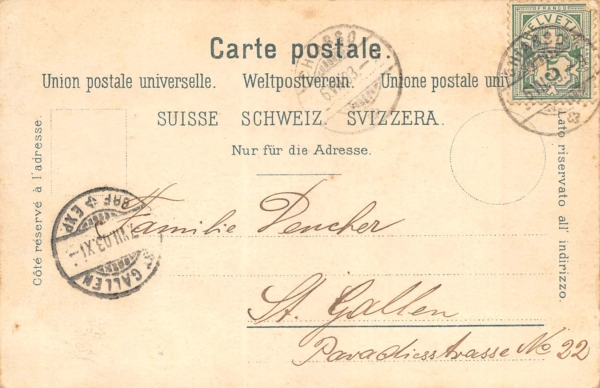 Carte postale.
Union postale universelle. Weltpostverein. Unione postale uni
SUISSE SCHWEIZ. SVIZZERA.
Nur für die Adresse.
Côté réservé à l'adresse.
Lato riservato all' indirizzo.
FRANCO
HELVETIA
5
GALLEN
BRF EXP.
03.XI
Familie
St. Gallen
Paradiesstrasse No 22